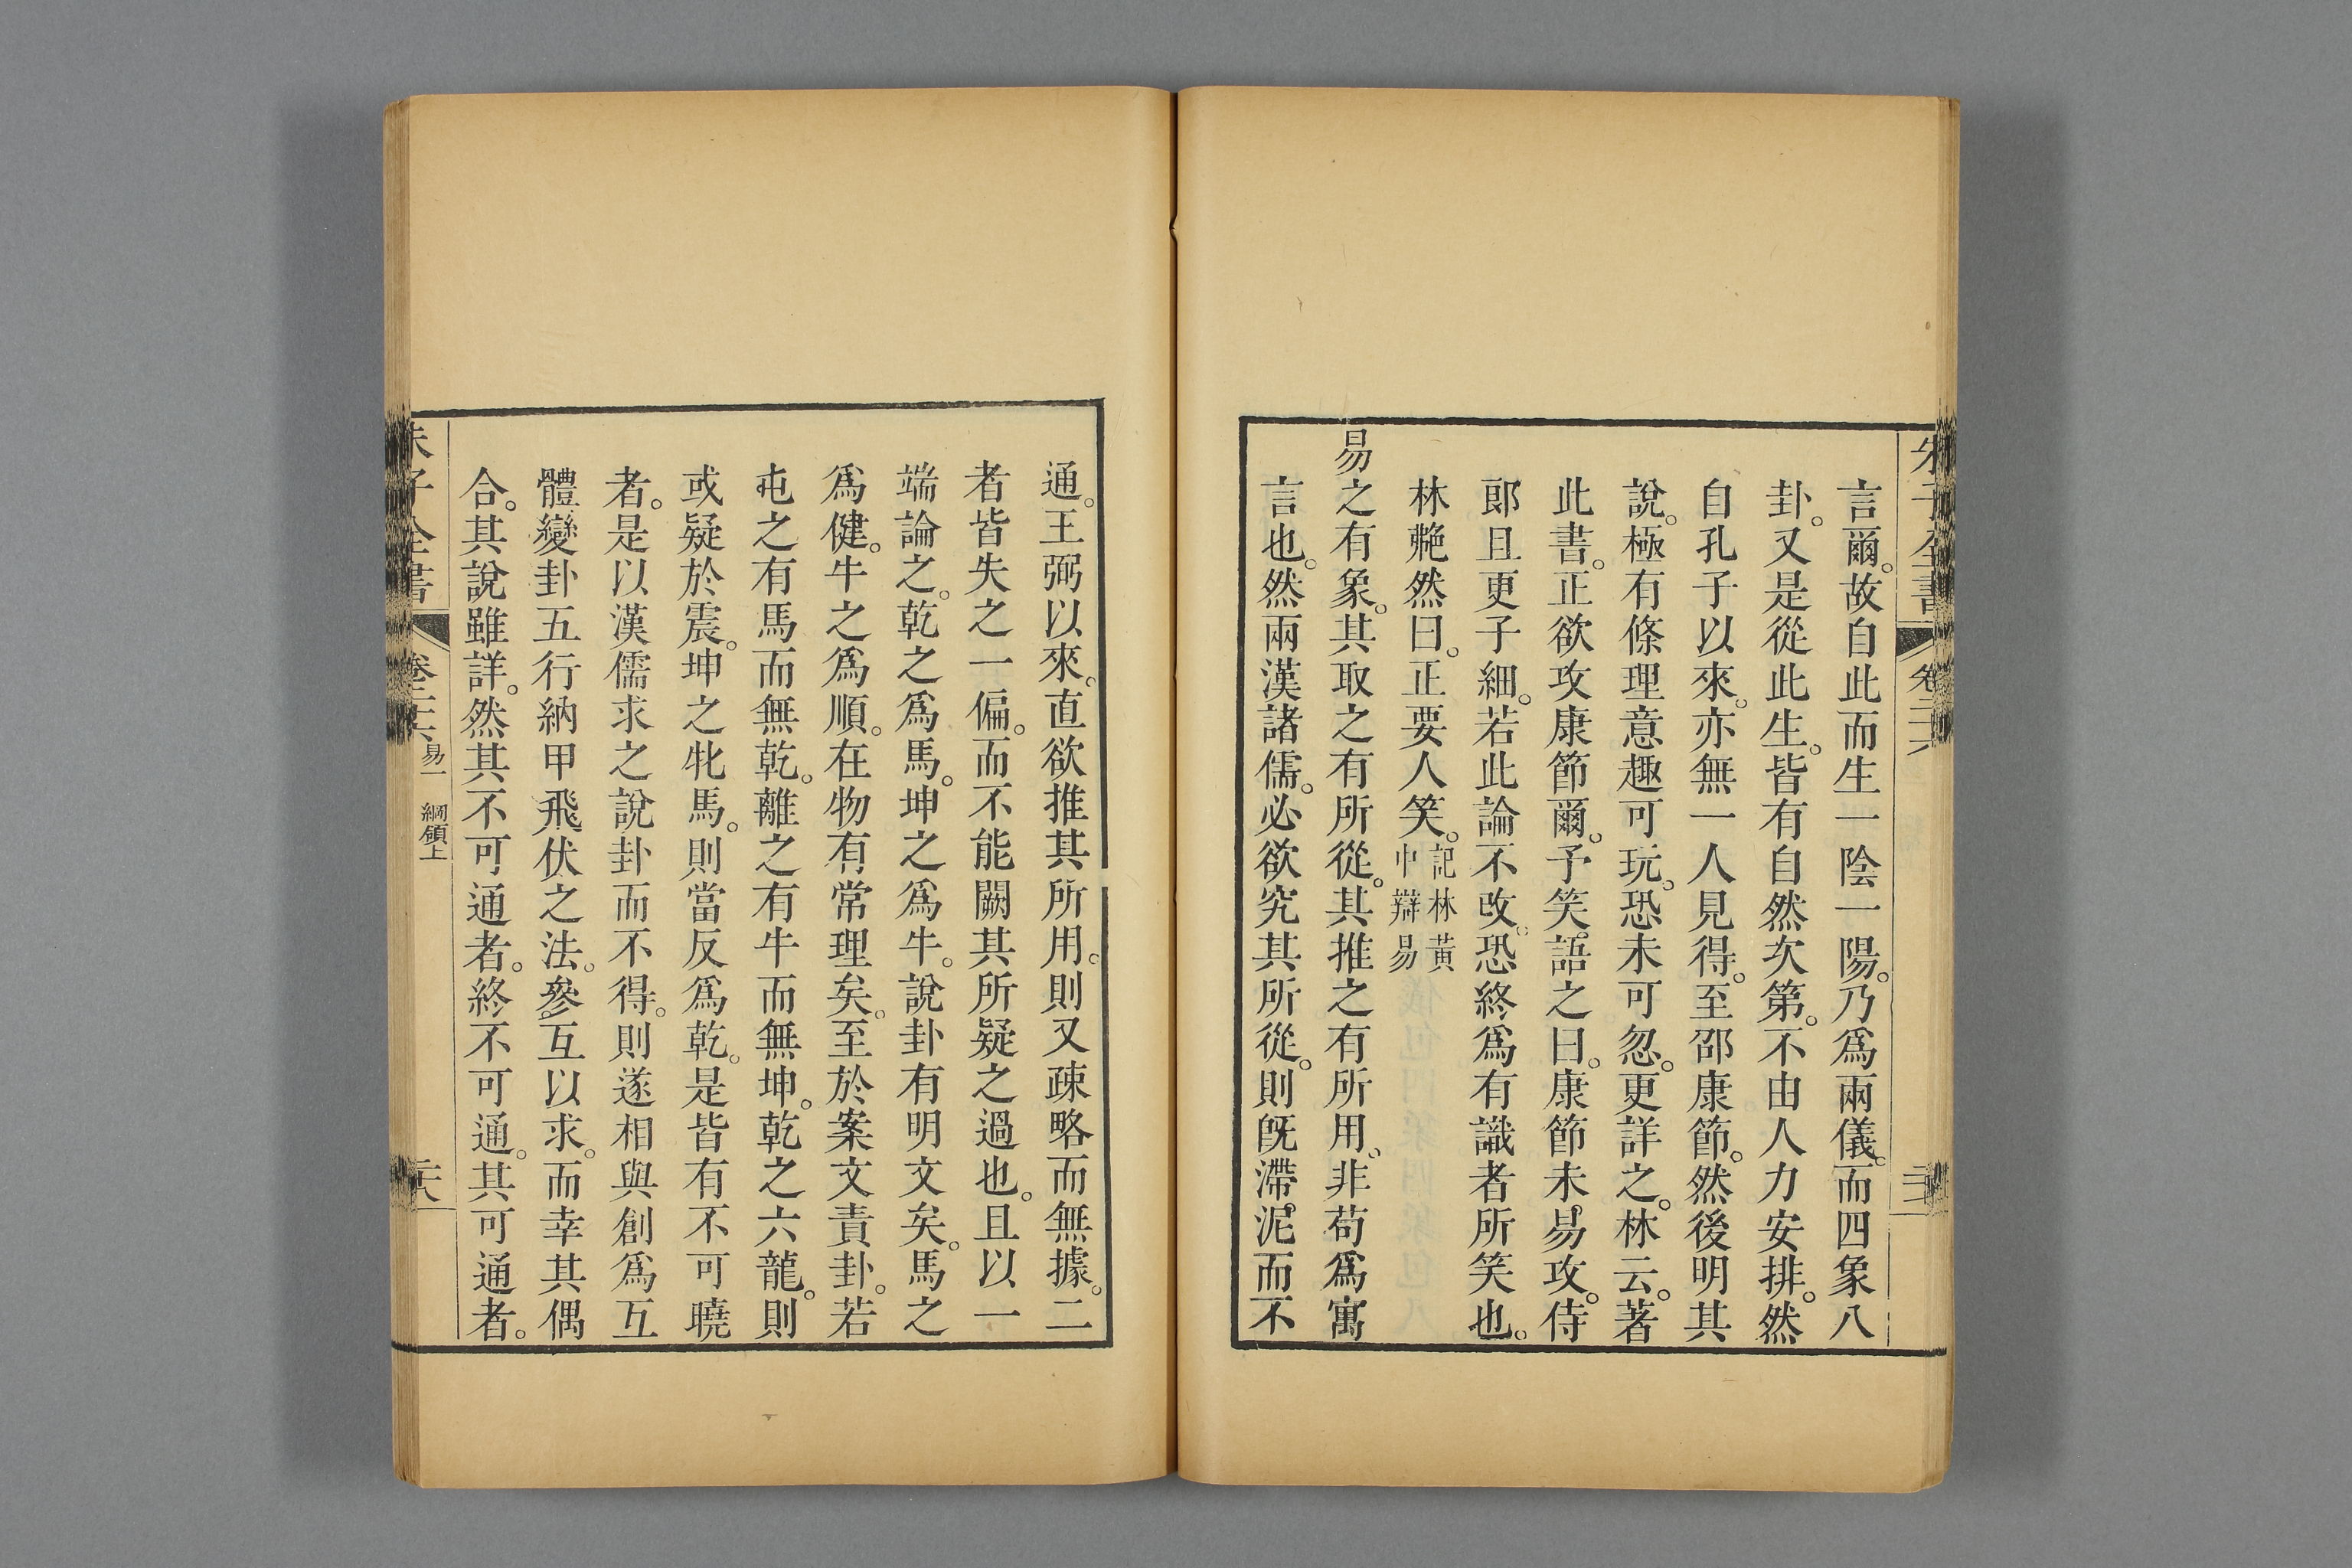 言爾。故自此而生一陰一陽。乃爲兩儀。而四象八
卦。又是從此生。皆有自然次第。不由人力安排。然
自孔子以來。亦無一人見得。至邵康節。然後明其
說。極有條理意趣可玩。恐未可忽。更詳之。林云。著
此書。正欲攻康節爾。予笑語之曰。康節未易攻。侍
郎且更子細。若此論不改。恐終爲有識者所笑也。
林艴然曰。正要人笑。記林黃
中辯易
易之有象。其取之有所從。其推之有所用。非苟爲寓
言也。然兩漢諸儒。必欲究其所從。則旣滯泥而不
通。王弼以來。直欲推其所用。則又疎略而無據。二
者皆失之一偏。而不能闕其所疑之過也。且以一
端論之。乾之爲馬。坤之爲牛。說卦有明文矣。馬之
爲健。牛之爲順。在物有常理矣。至於案文責卦。若
屯之有馬而無乾。離之有牛而無坤。乾之六龍。則
或疑於震。坤之牝馬。則當反爲乾。是皆有不可曉
者。是以漢儒求之說卦而不得。則遂相與創爲互
體變卦五行納甲飛伏之法。參互以求。而幸其偶
合。其說雖詳。然其不可通者。終不可通。其可通者。
朱子全書
易一 綱領上